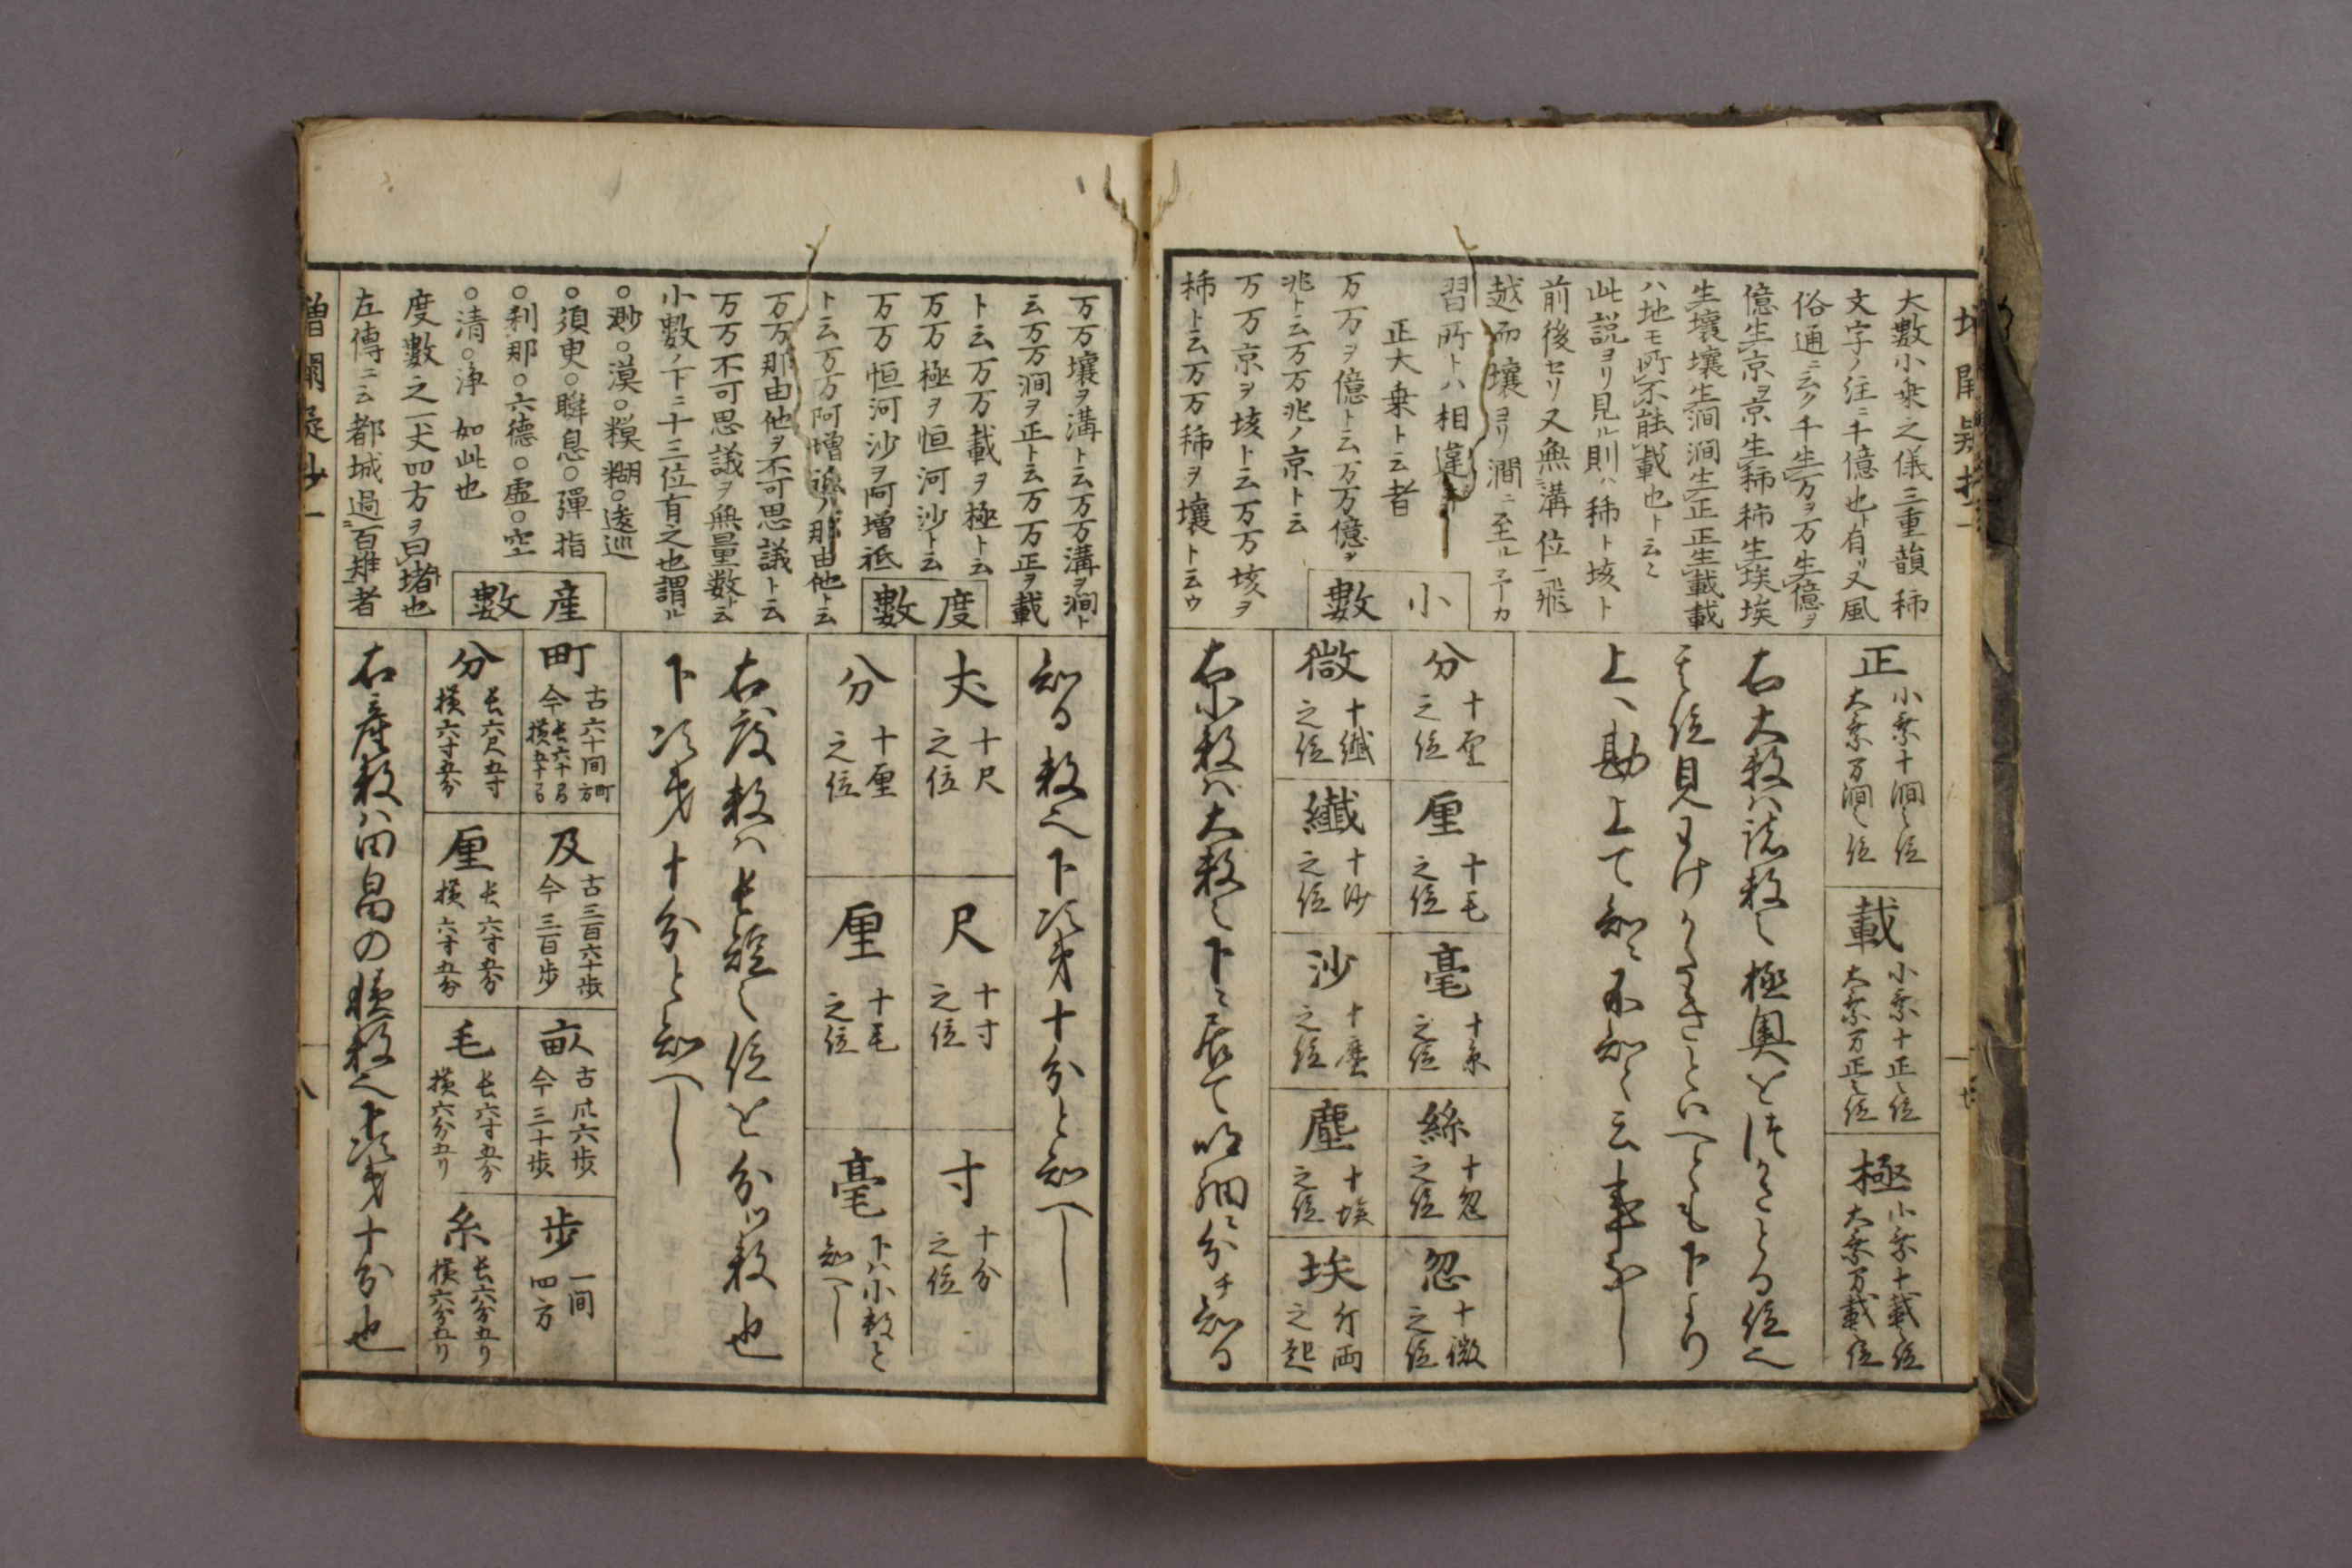 大數小乗之儀三重韻秭
文字ノ注ニ千億也ト有リ又風
俗通ニ云ク千生万ヲ万生億ヲ
億生京ヲ京生秭秭生埃埃
生壤壤生澗澗生正正生載載
ハ地モ所不能載也ト云ミ
此説ヨリ見ル則ハ秭ト垓ト
前後セリ又無溝位一飛
越而壤ヨリ澗ニ至ル
習所トハ相違
正大乗ト云者
万万ヲ億ト云万万億ヲ
兆ト云万万兆ノ京ト云
万万京ヲ垓ト云万万垓ヲ
秭ト云万万秭ヲ壤ト云ウ
正 小乗十澗之位
大乗万澗之位
載 小乗十正之位
大乗万正之位
極 小乗十載之位
大乗万載之位
右大数ハ諸数之極奥を
上ヽ勘上て知ミ不知と云事
小數
分 十厘之位
厘 十毛之位
毫 十糸之位
絲 十忽之位
忽 十微之位
微 十纎之位
纎 十沙之位
沙 十塵之位
塵 十埃之位
埃 斤両之起
右小数ハ大数之下ニ居て明細ニ分チ知る
万万壤ヲ溝ト云万万溝ヲ澗ト
云万万澗ヲ正ト云万万正ヲ載
ト云万万載ヲ極ト云
万万極ヲ恒河沙ト云
万万恒河沙ヲ阿増祗
ト云万万阿増祗ヲ那由他ト云
万万那由他ヲ不可思議ト云
万万不可思議ヲ無量数ト云
小數ノ下ニ十三位有之也謂ル
○渺○漠○糢糊○逡巡
○須臾○瞬息○彈指
○刹那○六德○虛○空
○清○淨 如此也
度數之一丈四方ヲ曰堵也
左傳ニ云都城過百雉者
知る数也下次第十分と知へし
度數
丈 十尺之位
尺 十寸之位
寸 十分之位
分 十厘之位
厘 十毛之位
毫 下ハ小数と知へし
右度数ハ長短之位を分ツ数也
下次第十分と知へし
産數
町 古六十間方町
今長六十間
横五十間
及 古三百六十歩
今三百歩
畝 古卅六歩
今三十歩
歩 一間四方
分 長六尺五寸
横六寸五分
厘 長六寸五分
横六寸五分
毛 長六寸五分
横六分五リ
糸 長六分五リ
横六分五リ
右産数ハ田畠の積数也下次第十分也
八